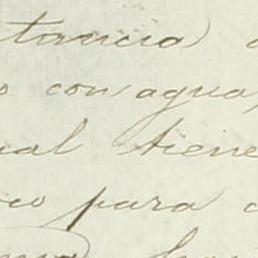 tancia
con agua,
al tiene
co para